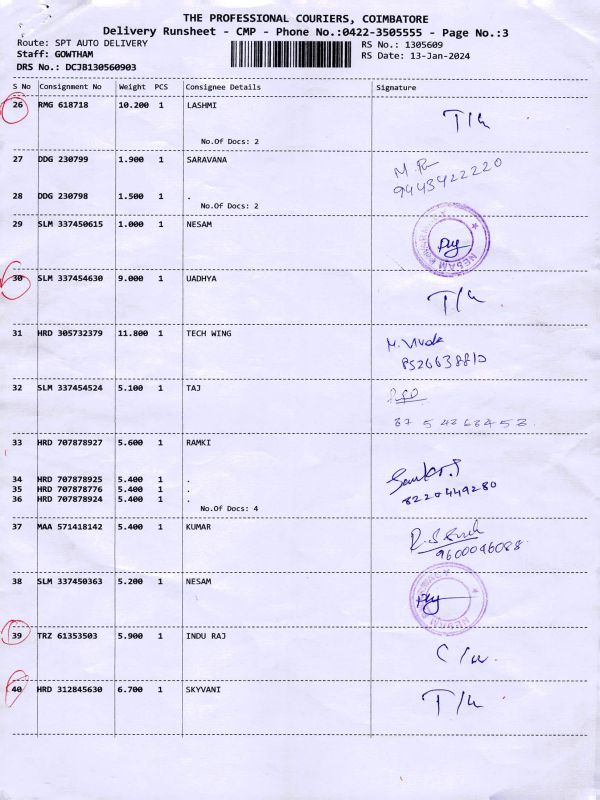 THE PROFESSIONAL COURIERS, COIMBATORE
Delivery Runsheet - CMP - Phone No.:0422-3505555 - Page No.:3
Route: SPT AUTO DELIVERY
RS No.: 1305609
Staff: GOWTHAM
RS Date: 13-Jan-2024
DRS No.: DCJB130560903
S No Consignment No Weight PCS Consignee Details Signature
26 RMG 618718 10.200 1 LASHMI
No.Of Docs: 2
27 DDG 230799 1.900 1 SARAVANA
9443422220
28 DDG 230798 1.500 1 .
No.Of Docs: 2
29 SLM 337450615 1.000 1 NESAM
NESAM
30 SLM 337454630 9.000 1 UADHYA
31 HRD 305732379 11.800 1 TECH WING
8526638810
32 SLM 337454524 5.100 1 TAJ
33 HRD 707878927 5.600 1 RAMKI
34 HRD 707878925 5.400 1 .
35 HRD 707878776 5.400 1 .
36 HRD 707878924 5.400 1 .
8220449280
No.Of Docs: 4
37 MAA 571418142 5.400 1 KUMAR
9600046088
38 SLM 337450363 5.200 1 NESAM
NESAM
39 TRZ 61353503 5.900 1 INDU RAJ
40 HRD 312845630 6.700 1 SKYVANI